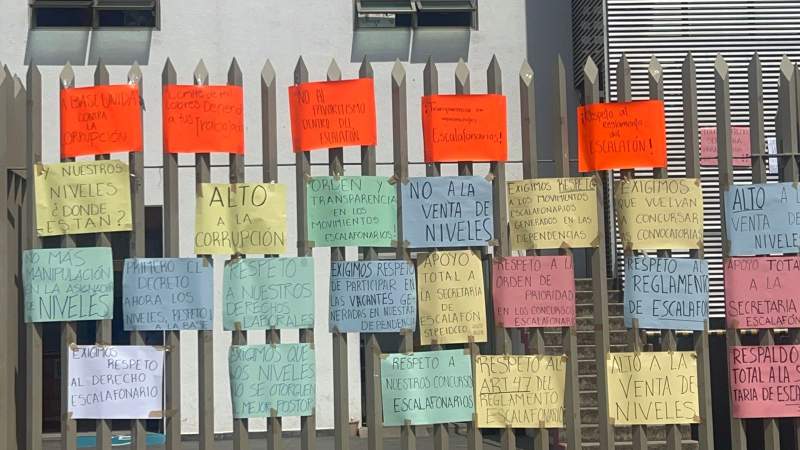 ¡BASE UNIDA
CONTRA
LA
CORRUPCIÓN
COMITÉ DE M
DEFIENDE
a tus Trabajad
NO AL
FAVORITISMO
DENTRO DEL
ESCALAFÓN
¡Transparencia en
Escalafonarios!
¡RESPETO
al reglamento
del
ESCALAFÓN!
¿Y NUESTROS
NIVELES
¿DONDE
ESTAN?
ALTO
A LA
CORRUPCIÓN
ORDEN Y
TRANSPARENCIA
EN LOS
MOVIMIENTOS
ESCALAFONARIOS
NO A LA
VENTA DE
NIVELES
EXIGIMOS RESPETO
A LOS MOVIMIENTOS
ESCALAFONARIOS
GENERADOS EN LAS
DEPENDENCIAS
EXIGIMOS
QUE VUELVAN
A CONCURSAR
CONVOCATORIA
ALTO A LA
VENTA DE
NIVELES
NO MAS
MANIPULACIÓN
EN LA ASIGNACIÓN
DE NIVELES
PRIMERO EL
DECRETO
AHORA LOS
NIVELES, RESPETO
A LA BASE
RESPETO
A NUESTROS
DERECHOS
LABORALES
EXIGIMOS RESPETO
DE PARTICIPAR EN
LAS VACANTES GE-
NERADAS EN NUESTRA
DEPENDENCIA
APOYO
TOTAL A LA
SECRETARIA
DE
ESCALAFÓN
RESPETO A LA
ORDEN DE
PRIORIDAD
EN LOS CONCURSOS
ESCALAFONARIOS
RESPETO AL
REGLAMENT
DE
ESCALAFO
APOYO TOTAL
A LA
SECRETARIA
ESCALAFON
EXIGIMOS
RESPETO
AL DERECHO
ESCALAFONARIO
EXIGIMOS QUE
LOS NIVELES
NO SE OTORGUEN
MEJOR POSTOR
RESPETO A
NUESTROS CONCURSO
ESCALAFONARIOS
RESPETO AL
ART 47 DEL
REGLAMENTO
ESCALAFONARIO
ALTO A LA
VENTA DE
NIVELES
RESPALDO
TOTAL A LA S
TARIA DE
ESCALAFON